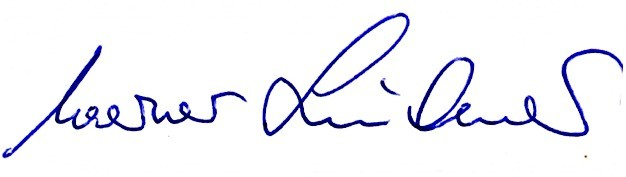 Werner Lindner